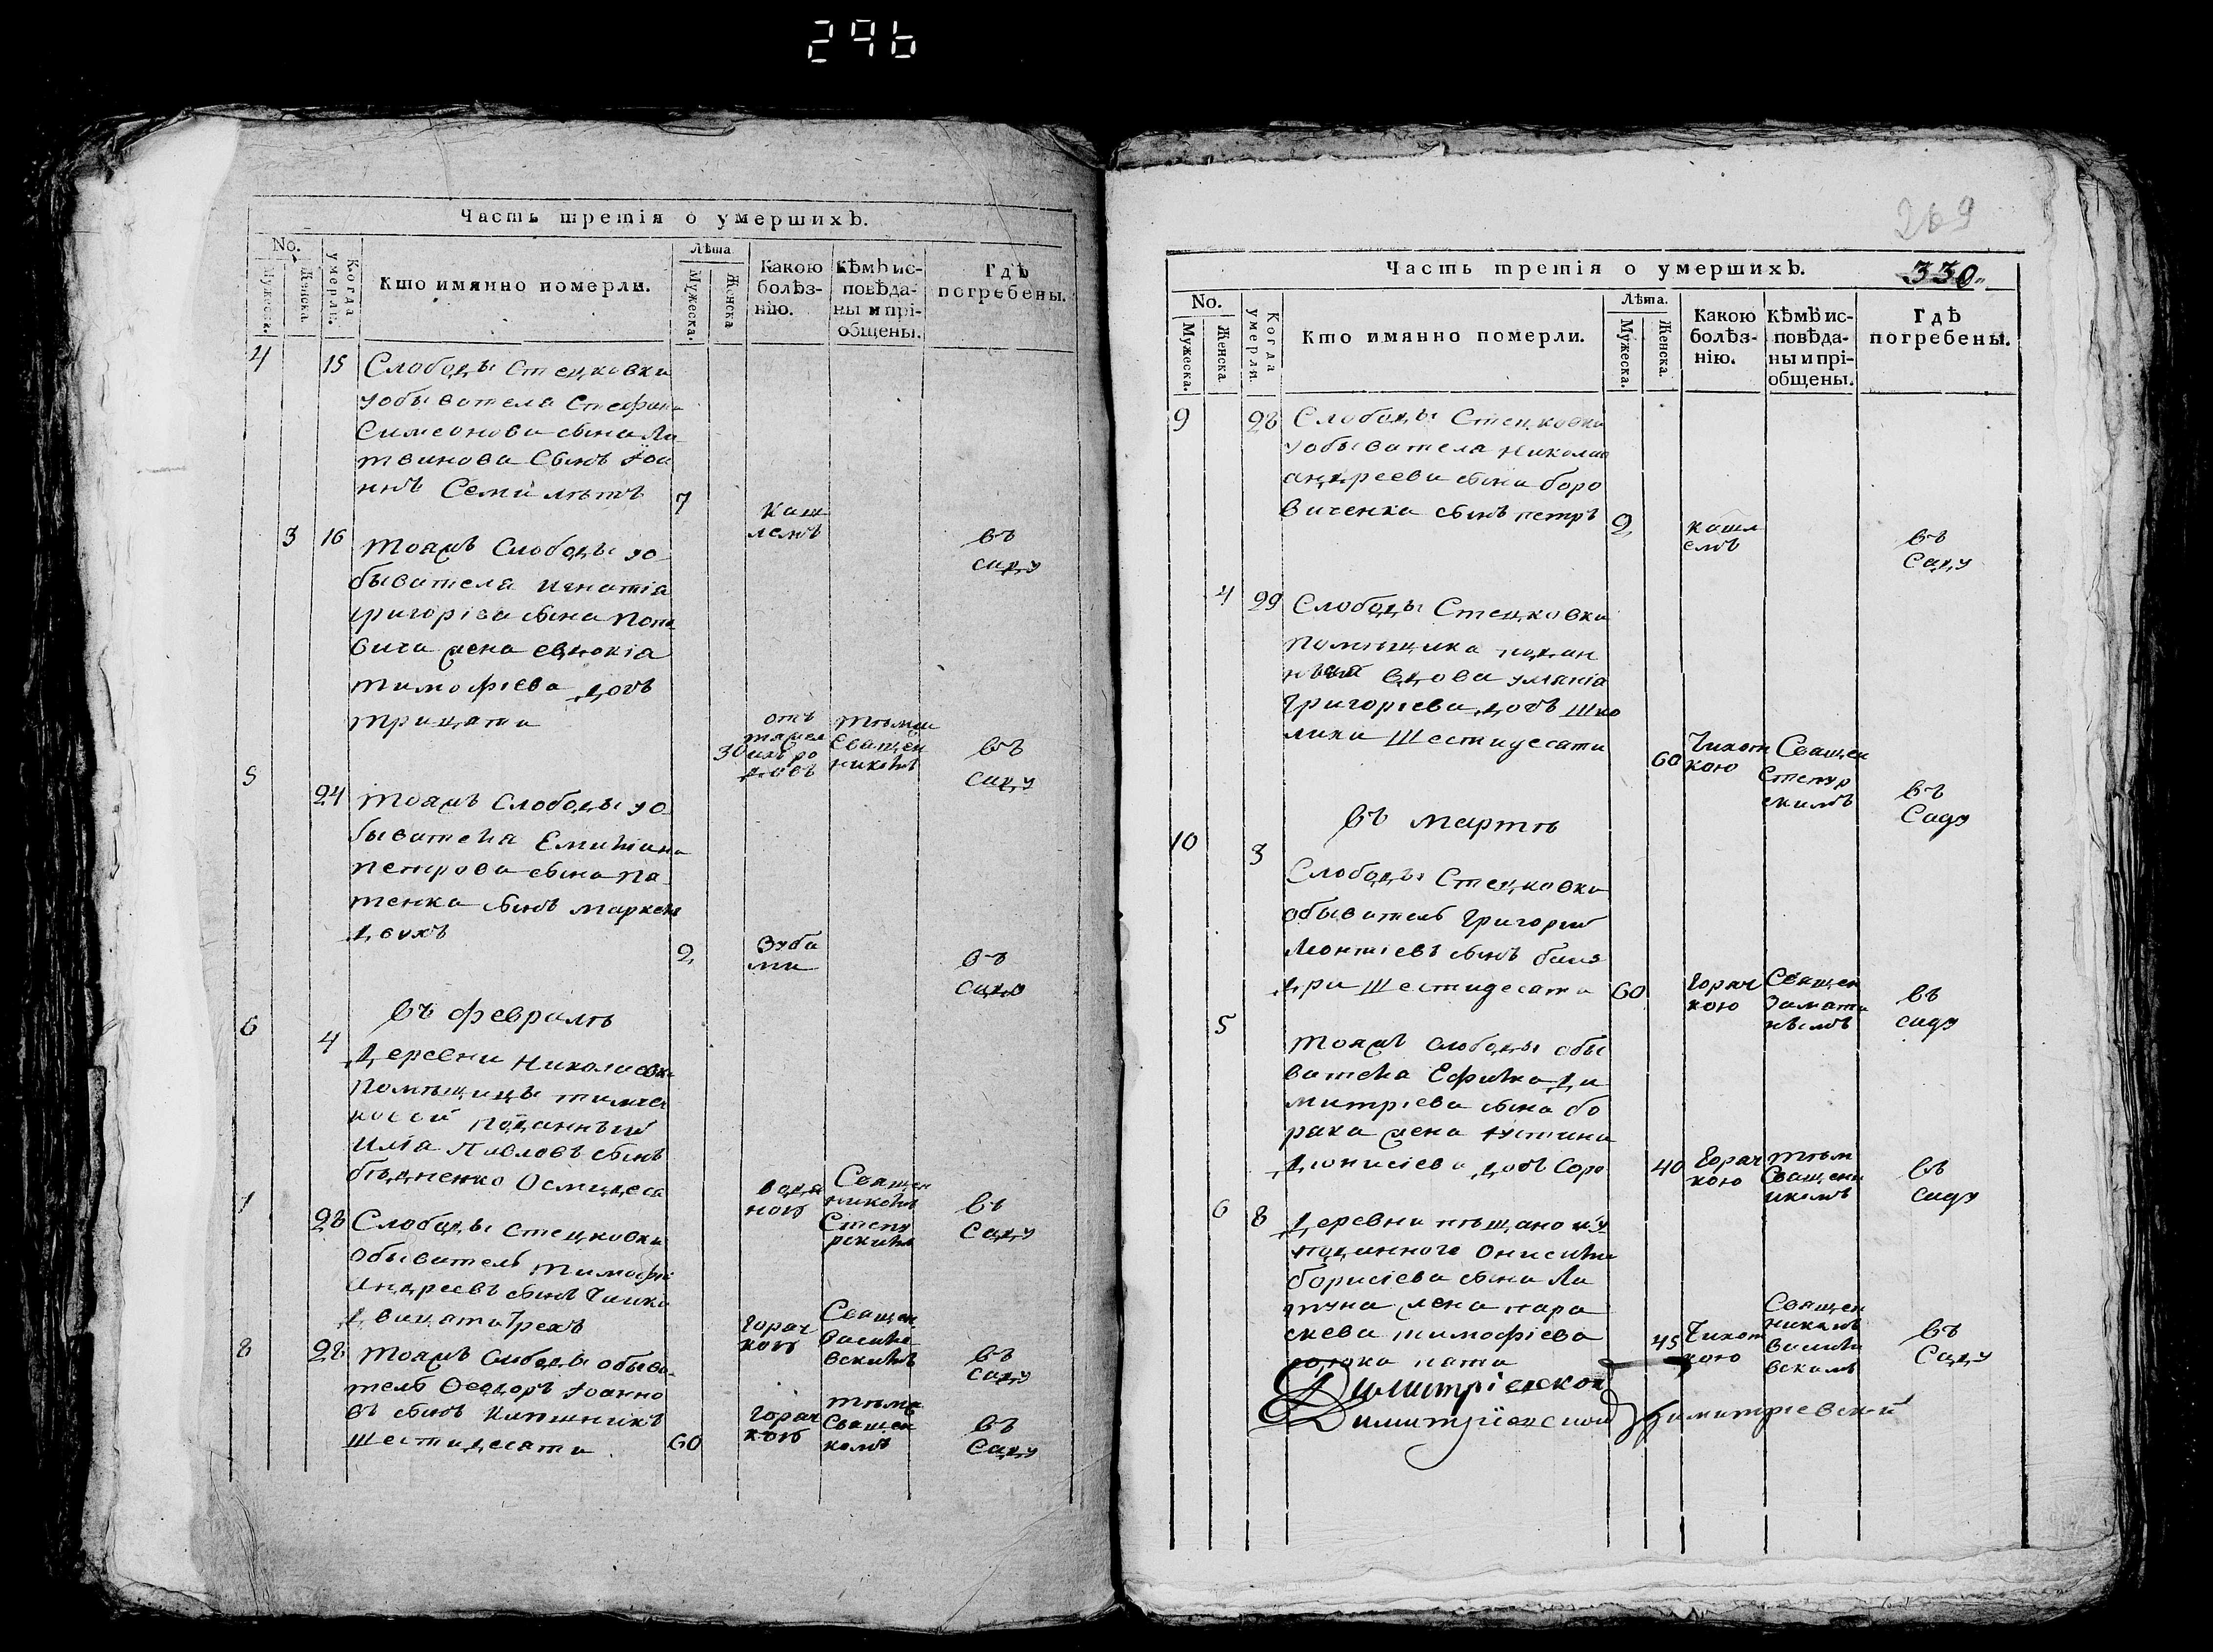 296
Часть третія о умершихъ.
No.
Мужеска.
Женска.
Когда умерли.
Кто имянно померли.
Лѣта
Мужеска.
Женска
Какою болѣз-
нію.
Кѣмъ ис-
повѣда-
ны и прі-
общены.
Гдѣ
погребены.
4 15 Слободы Стецковки
уобывателя Стефана
Симеонова сына Ли
твинова Сынъ Іоа
ннъ Семи лѣтъ 7
Каш
лемъ
въ
саду
3 16 тояжъ Слободы уо
бывателя Игнатія
григоріева сына Попо
вича жена евдокія
тимофіева дочь
трицати 30
отъ
тяжел
ихъ ро
довъ
тѣмже
Священ
никомъ
въ
саду
5 24 тояжъ Слободы уо
бывателя Емиліана
петрова сына Па
тенка сынъ маркелъ
двухъ 2
Зуба
ми
въ
саду
въ февралѣ
6 4 Деревни Николаевки
Помѣщицы
подданный
Илія Павловъ сынъ
бѣдненко Осмидеся
водя
ною
Священ
никомъ
Степу
рскимъ
въ
Саду
7 28 Слободы Стецковки
обыватель тимофей
андреевъ сынъ
двацати трехъ
горяч
кою
Священ
Василе
вскимъ
въ
саду
8 28 тояжъ Слободы обыва
тель Ѳеодоръ Іоанно
въ сынъ
шестидесяти 60
горяч
кою
тѣмже
Священ
комъ
въ
Саду
269
Часть третія о умершихъ. 330
No.
Мужеска.
Женска
Когда умерли.
Кто имянно померли.
Лѣта.
Мужеска.
Женска.
Какою
болѣз-
нію.
Кѣмъ ис-
повѣда-
ны и прі-
общены.
Гдѣ
погребены.
9 28 Слободы Стецковки
уобывателя Николая
андреева сына боро
виченка сынъ петръ 2
кашл
емъ
въ
Саду
4 29 Слободы Стецковки
помѣщика поддан
вдова
Григоріева дочь шко
лики шестидесяти 60
Чихот
кою
Священ
Степур
скимъ
въ
Саду
въ мартѣ
10 3 Слободы Стецковки
обыватель григорій
Леонтіевъ сынъ
шестидесяти 60
горяч
кою
Священ
въ
саду
5 тояжъ слободы обы
вателя Ефима Ди
митріева сына бо
рака жена Іустина
Діонисіева дочь Соро 40
Горяч
кою
тѣмъ
Священн
икомъ
въ
саду
6 8 Деревни
подданного Онисима
борисіева сына Ла
туна жена пара
скева тимофіева
пяти 45
Чихот
кою
Священ
никомъ
василе
вскимъ
въ
Саду
Димитріевской
Димитріевской Димитріевской